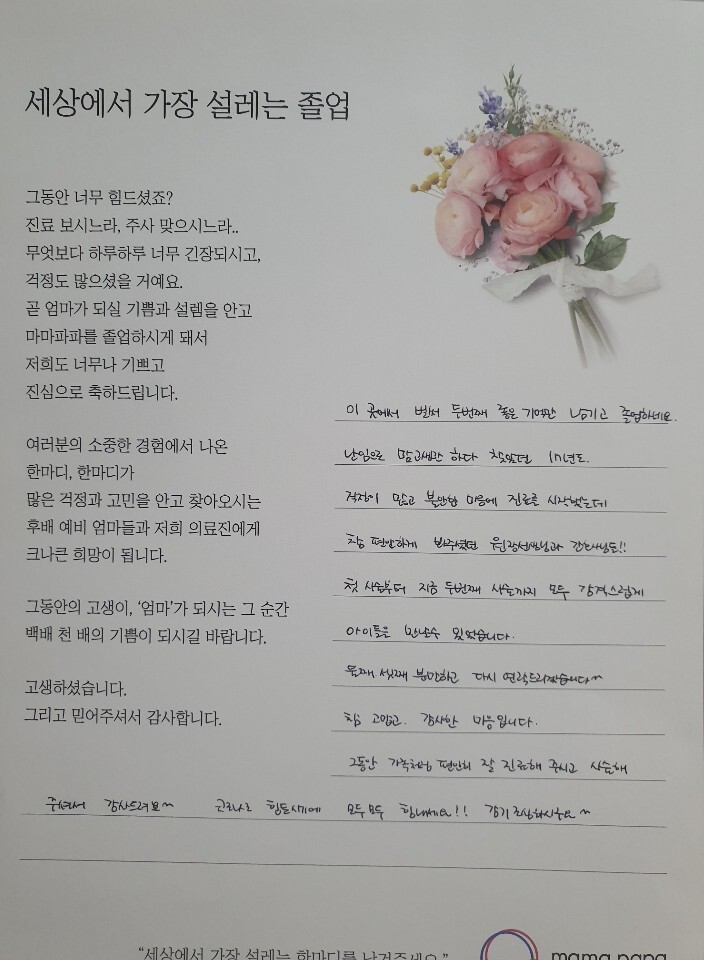 세상에서 가장 설레는 졸업
그동안 너무 힘드셨죠?
진료 보시느라, 주사 맞으시느라..
무엇보다 하루하루 너무 긴장되시고,
걱정도 많으셨을 거예요.
곧 엄마가 되실 기쁨과 설렘을 안고
마마파파를 졸업하시게 돼서
저희도 너무나 기쁘고
진심으로 축하드립니다.
여러분의 소중한 경험에서 나온
한마디, 한마디가
많은 걱정과 고민을 안고 찾아오시는
후배 예비 엄마들과 저희 의료진에게
크나큰 희망이 됩니다.
그동안의 고생이, '엄마'가 되시는 그 순간
백배 천 배의 기쁨이 되시길 바랍니다.
고생하셨습니다.
그리고 믿어주셔서 감사합니다.
이 곳에서 벌써 두번째 좋은 기억만 남기고 졸업하네요.
난임으로 맘고생만 하다 찾았던
걱정이 많고 불안한 마음에 진료를 시작했는데
참 편안하게 봐주셨던 원장선생님과 간호사님들!!
첫 시술부터 지금 두번째 시술까지 모두 감격스럽게
아이들을 만날수 있었습니다.
둘째, 셋째 분만하고 다시 연락드리겠습니다~
참 고맙고. 감사한 마음입니다.
그동안 가족처럼 편안히 잘 진료해 주시고 시술해
주셔서 감사드려요~ 코로나로 힘든시기에 모두모두 힘내세요!! 감기조심하시구요~
"세상에서 가장 설레는 한마디를 남겨주세요."
mama papa